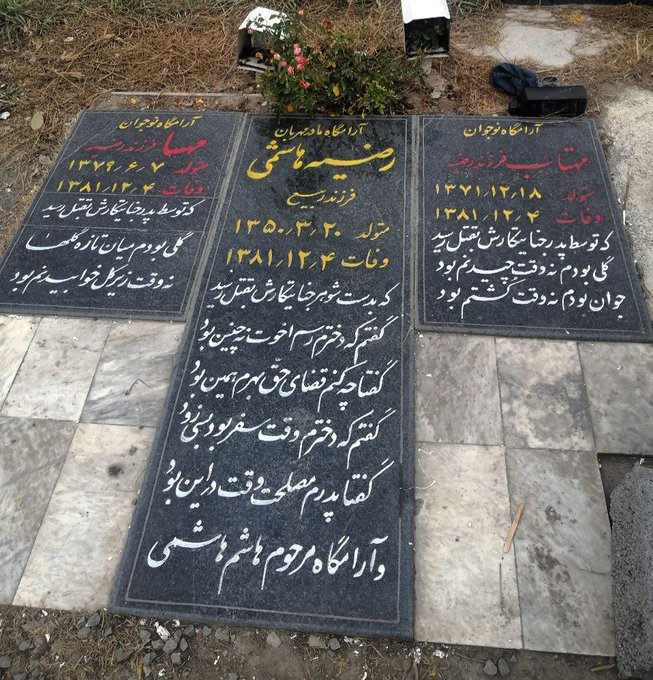 آرامگاه نوجوان
مهتاب فرزند رضیه
متولد ۱۳۷۱٫۱۲٫۱۸
وفات ۱۳۸۱٫۱۲٫۴
که توسط پدر جنایتکارش بقتل رسید
گلی بودم نه وقت چیدنم بود
جوان بودم نه وقت کشتنم بود
آرامگاه مادر مهربان
رضیه هاشمی
فرزند
متولد ۱۳۵۰٫۳٫۲۰
وفات ۱۳۸۱٫۱۲٫۴
که بدست شوهر جنایتکارش بقتل رسید
گفتم که دخترم رسم اخوت نه چنین بود
گفتا چه کنم قضای حق بهرم همین بود
گفتم که دخترم وقت سفر بود بسی زود
گفتا پدرم مصلحت وقت در این بود
و آرامگاه مرحوم هاشم هاشمی
آرامگاه نوجوان
مهسا فرزند رضیه
متولد ۱۳۷۹٫۶٫۷
وفات ۱۳۸۱٫۱۲٫۴
که توسط پدر جنایتکارش بقتل رسید
گلی بودم میان تازه گلها
نه وقت زیر گل خوابیدنم بود